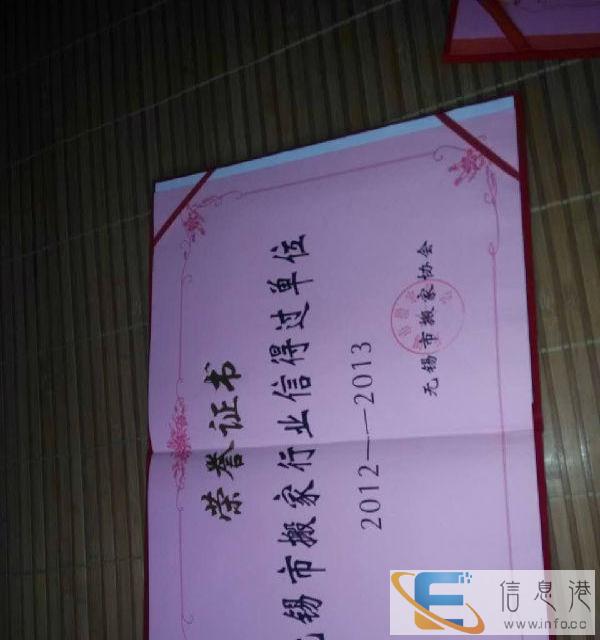 荣誉证书
无锡市搬家行业信得过单位
2012-—2013
无锡市搬家协会
信息港
www.info.cc